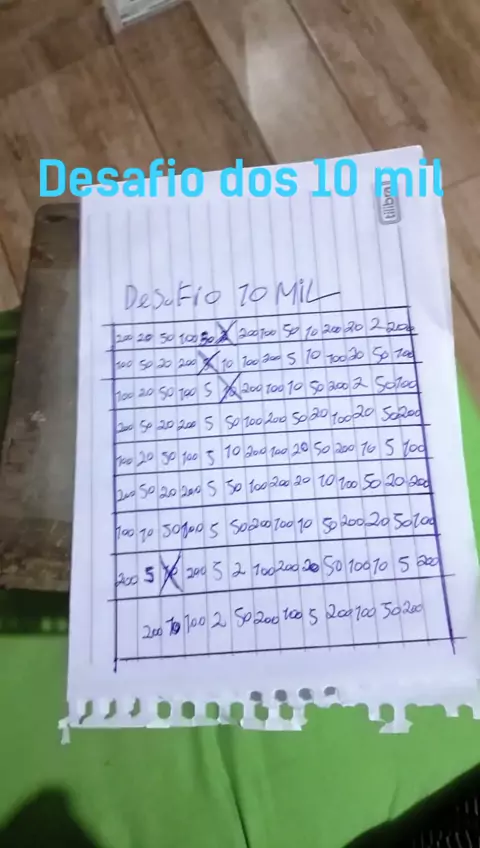 Desafio dos 10 mil
tilibra
Desafio 10 MIL
200 20 50 100 50 200 100 50 10 200 20 2 200
100 50 20 200 5 10 100 200 5 10 100 20 50 100
100 20 50 100 5 10 200 100 10 50 200 2 50 100
200 50 20 200 5 50 100 200 50 20 100 20 50 200
100 20 50 100 5 10 200 100 20 50 200 10 5 100
200 50 20 200 5 50 100 200 20 10 100 50 20 200
100 10 50 100 5 50 200 100 10 50 200 20 50 100
200 5 10 200 5 2 100 200 20 50 100 10 5 200
200 10 100 2 50 200 100 5 200 100 50 200